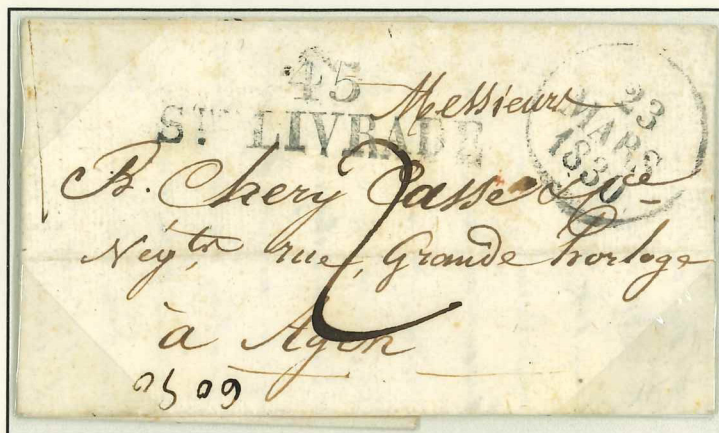 45
STE LIVRADE
23
MARS
1830
Messieurs
B. Chery Casse & Cie
Négts rue, Grande horloge
2
à Agen